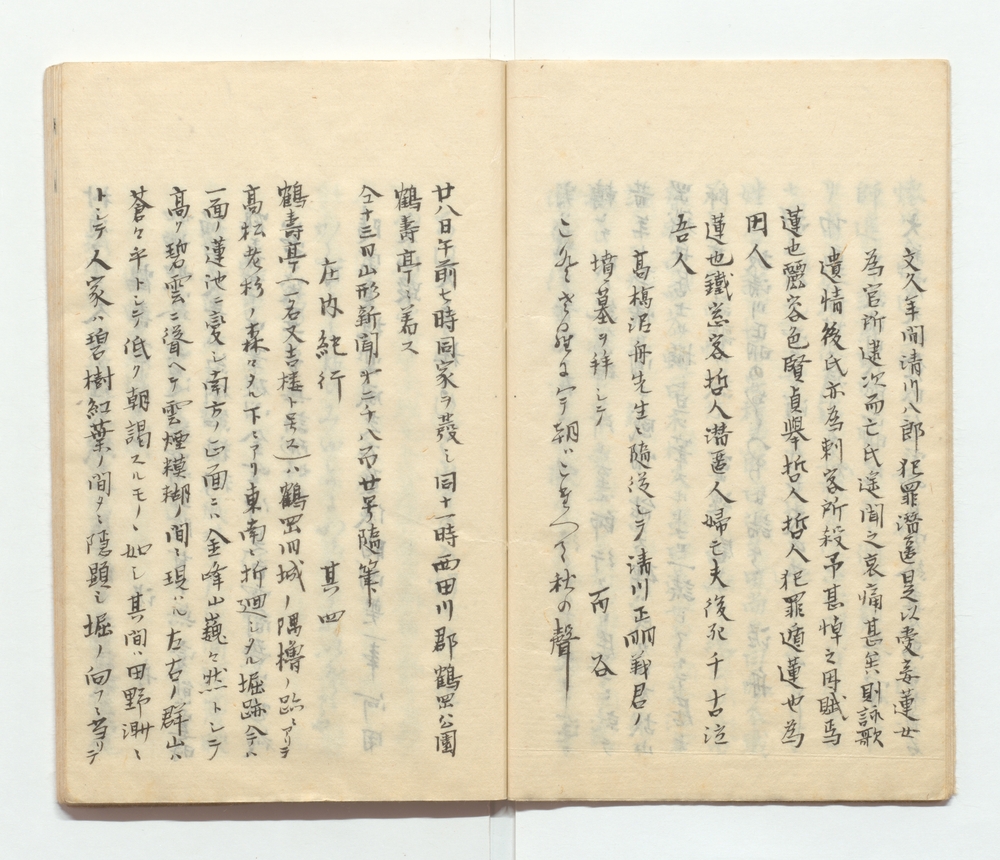 文久年間清川八郎犯罪潜匿是以愛妾蓮女
為官所逮次而亡氏途聞之哀痛甚矣則詠歌
遺情後氏亦為刺客所殺吊甚悼之因賦焉
蓮也麗容色賢貞挙哲人哲人犯罪遁蓮也為
因人
蓮也鐵窓客哲人潜匿人婦亡夫後死千古泣
吾人
高橋泥舟先生ニ隨従シテ清川正明義君ノ
墳墓ヲ拝シテ
秋の聲
廿八日午前七時同家ヲ發シ同十一時西田川郡鶴岡公園
鶴壽亭ニ着ス
仝十三日山形新聞第二千八百廿号隨筆
庄内紀行 其四
鶴壽亭(一名又吉楼ト号ス)ハ鶴岡旧城ノ隅櫓ノ跡ニアリテ
高松老杉ノ森々タル下ニアリ東南ニ折廻シタル堀跡今ハ
一面ノ蓮池ニ変シ南方ノ正面ニハ金峰山巍々然トシテ
高ク碧雲ニ聳ヘテ雲煙糢糊ノ間ニ現ハル左右ノ群山ハ
蒼々平トシテ低ク朝謁スルモノヽ如シ其間ハ田野渺々
トシテ人家ハ碧樹紅葉ノ間タニ隠顕シ堀ノ向フニ当リテ